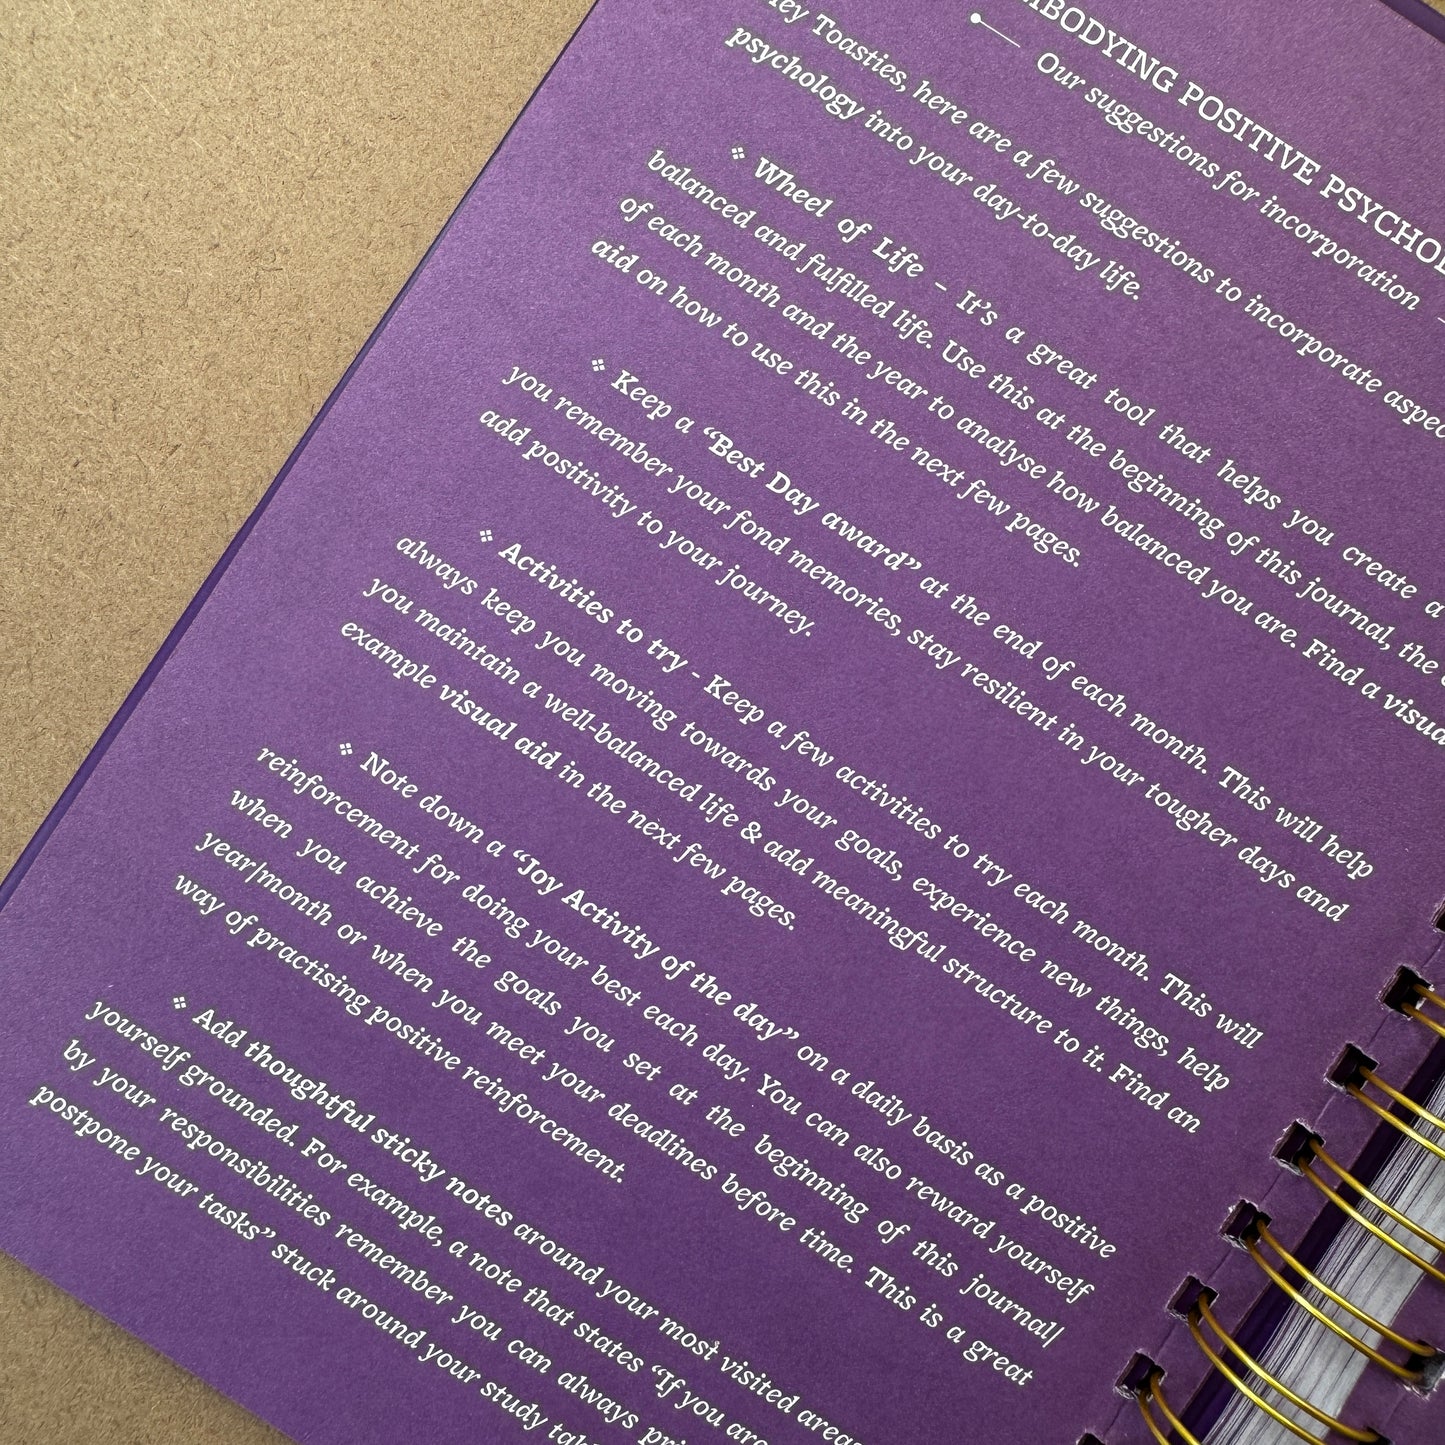 MBODYING POSITIVE PSYCHOL
Our suggestions for incorporation
ey Toasties, here are a few suggestions to incorporate aspec
psychology into your day-to-day life.
❖ Wheel of Life – It’s a great tool that helps you create a
balanced and fulfilled life. Use this at the beginning of this journal, the
of each month and the year to analyse how balanced you are. Find a visual
aid on how to use this in the next few pages.
❖ Keep a “Best Day award” at the end of each month. This will help
you remember your fond memories, stay resilient in your tougher days and
add positivity to your journey.
❖ Activities to try - Keep a few activities to try each month. This will
always keep you moving towards your goals, experience new things, help
you maintain a well-balanced life & add meaningful structure to it. Find an
example visual aid in the next few pages.
❖ Note down a “Joy Activity of the day” on a daily basis as a positive
reinforcement for doing your best each day. You can also reward yourself
when you achieve the goals you set at the beginning of this journal|
year|month or when you meet your deadlines before time. This is a great
way of practising positive reinforcement.
❖ Add thoughtful sticky notes around your most visited areas
yourself grounded. For example, a note that states “If you are
by your responsibilities remember you can always pri
postpone your tasks” stuck around your study tab